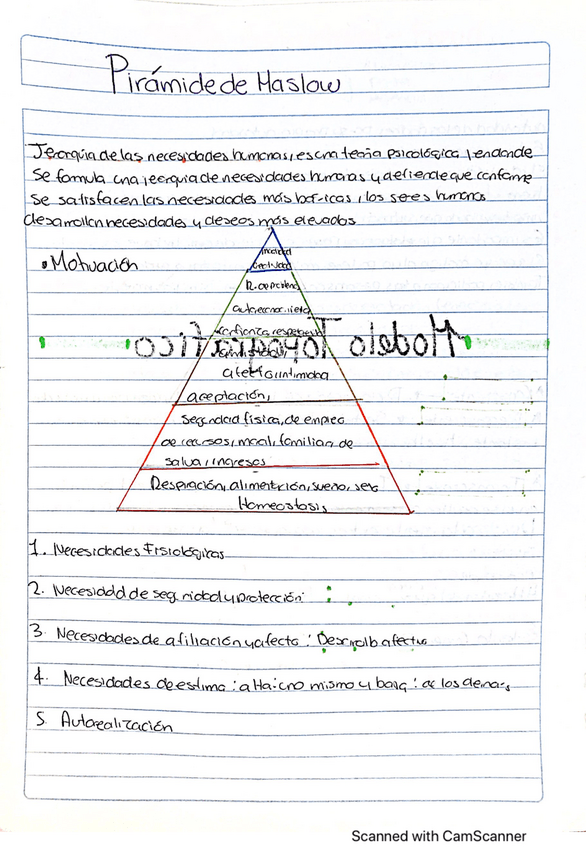 Pirámide de Maslow
Jerarquía de las necesidades humanas, es una teoría psicológica, y en donde
se formula una jerarquía de necesidades humanas y defiende que conforme
se satisfacen las necesidades más básicas, los seres humanos
desarrollan necesidades y deseos más elevados
• Motivación
confianza, respeto
Modelo Topográfico
afecto, intimidad
aceptación,
Seguridad física, de empleo
de recursos, moral, familiar, de
salud, ingresos
Respiración, alimentación, sueño, sexo
Homeostasis
1. Necesidades Fisiológicas
2. Necesidad de seguridad y protección:
3. Necesidades de afiliación y afecto : Desarrollo afectivo
4. Necesidades de estima : alta: uno mismo y baja : de los demás
5. Autorealización
Scanned with CamScanner